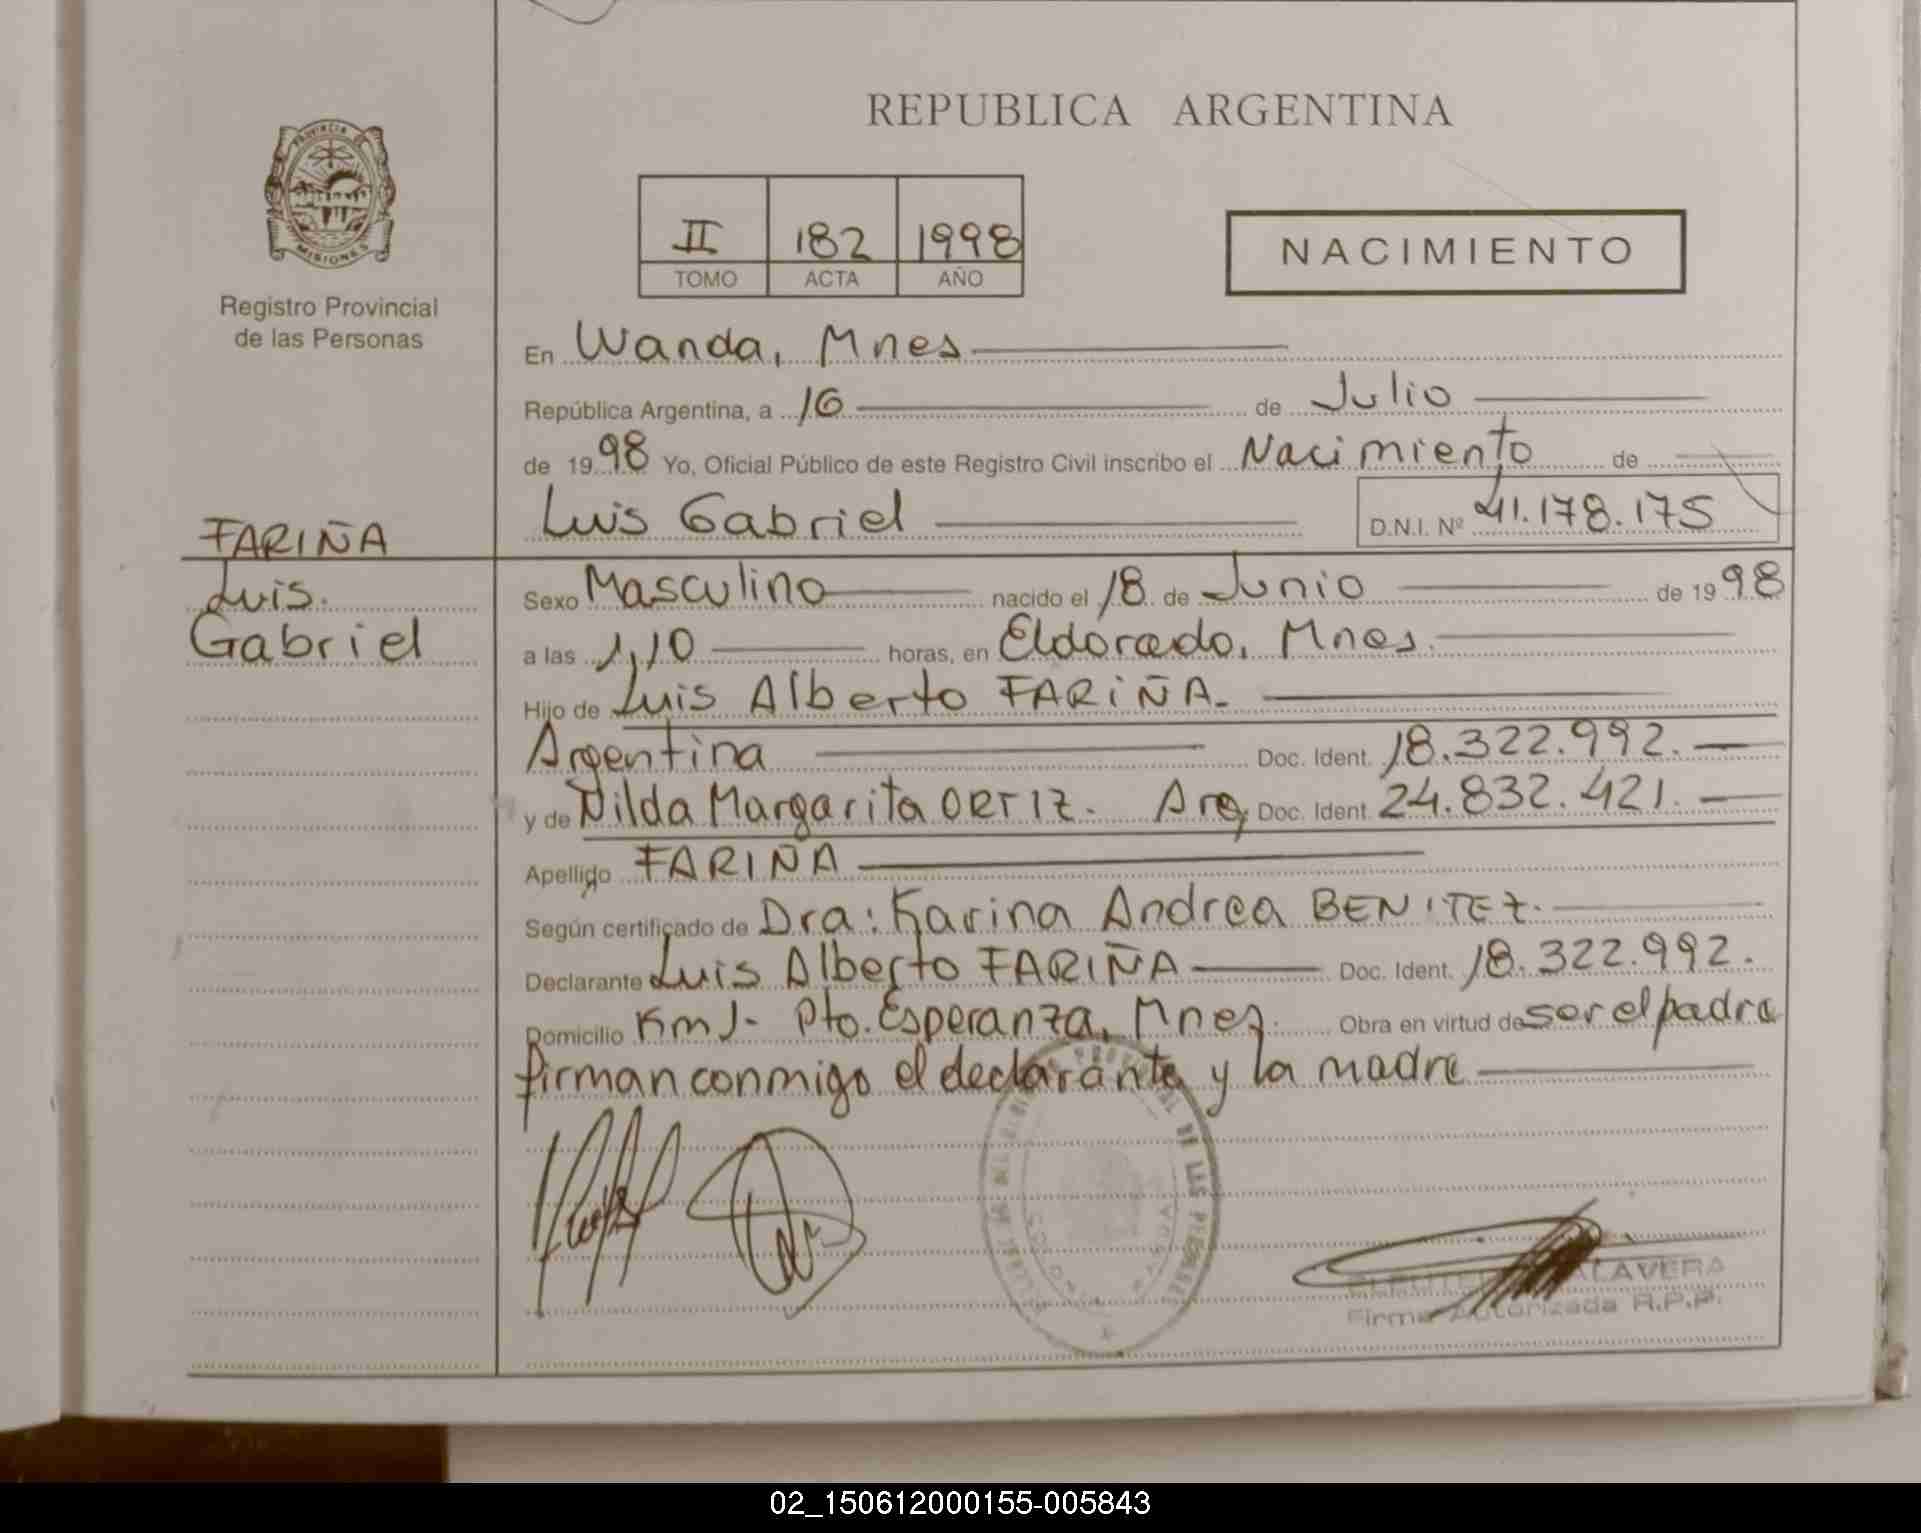 REPUBLICA ARGENTINA
PROVINCIA DE
MISIONES
Registro Provincial
de las Personas
II 182 1998
TOMO ACTA AÑO
NACIMIENTO
En Wanda, Mnes
República Argentina, a 16 de Julio
de 1998 Yo, Oficial Público de este Registro Civil inscribo el Nacimiento de
Luis Gabriel D.N.I. Nº 41.178.175
FARIÑA
Luis.
Gabriel
Sexo Masculino nacido el 18 de Junio de 1998
a las 1,10 horas, en Eldorado, Mnes.
Hijo de Luis Alberto FARIÑA.
Argentina Doc. Ident. 18.322.992.
y de Nilda Margarita ORTIZ. Arg Doc. Ident. 24.832.421.
Apellido FARIÑA
Según certificado de Dra: Karina Andrea BENITEZ.
Declarante Luis Alberto FARIÑA Doc. Ident. 18.322.992.
Domicilio Km 1- Pto. Esperanza, Mnes. Obra en virtud de ser el padre
firman conmigo el declarante y la madre
DE LAS PERSONAS
Firma Autorizada R.P.P.
02_150612000155-005843